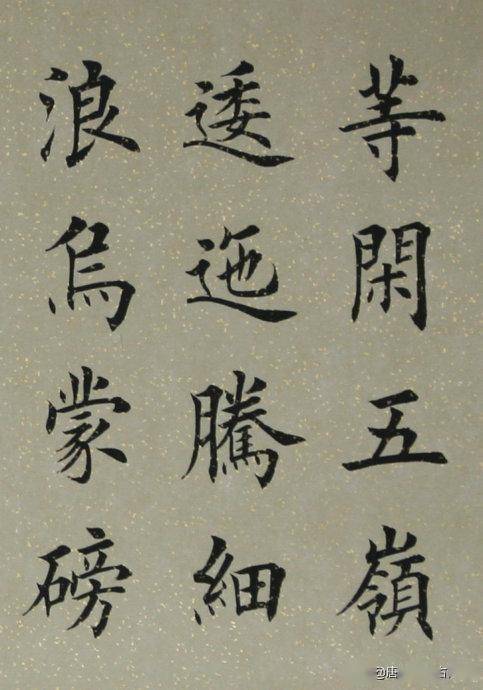 等閑五嶺
逶迤騰細
浪烏蒙磅
@唐